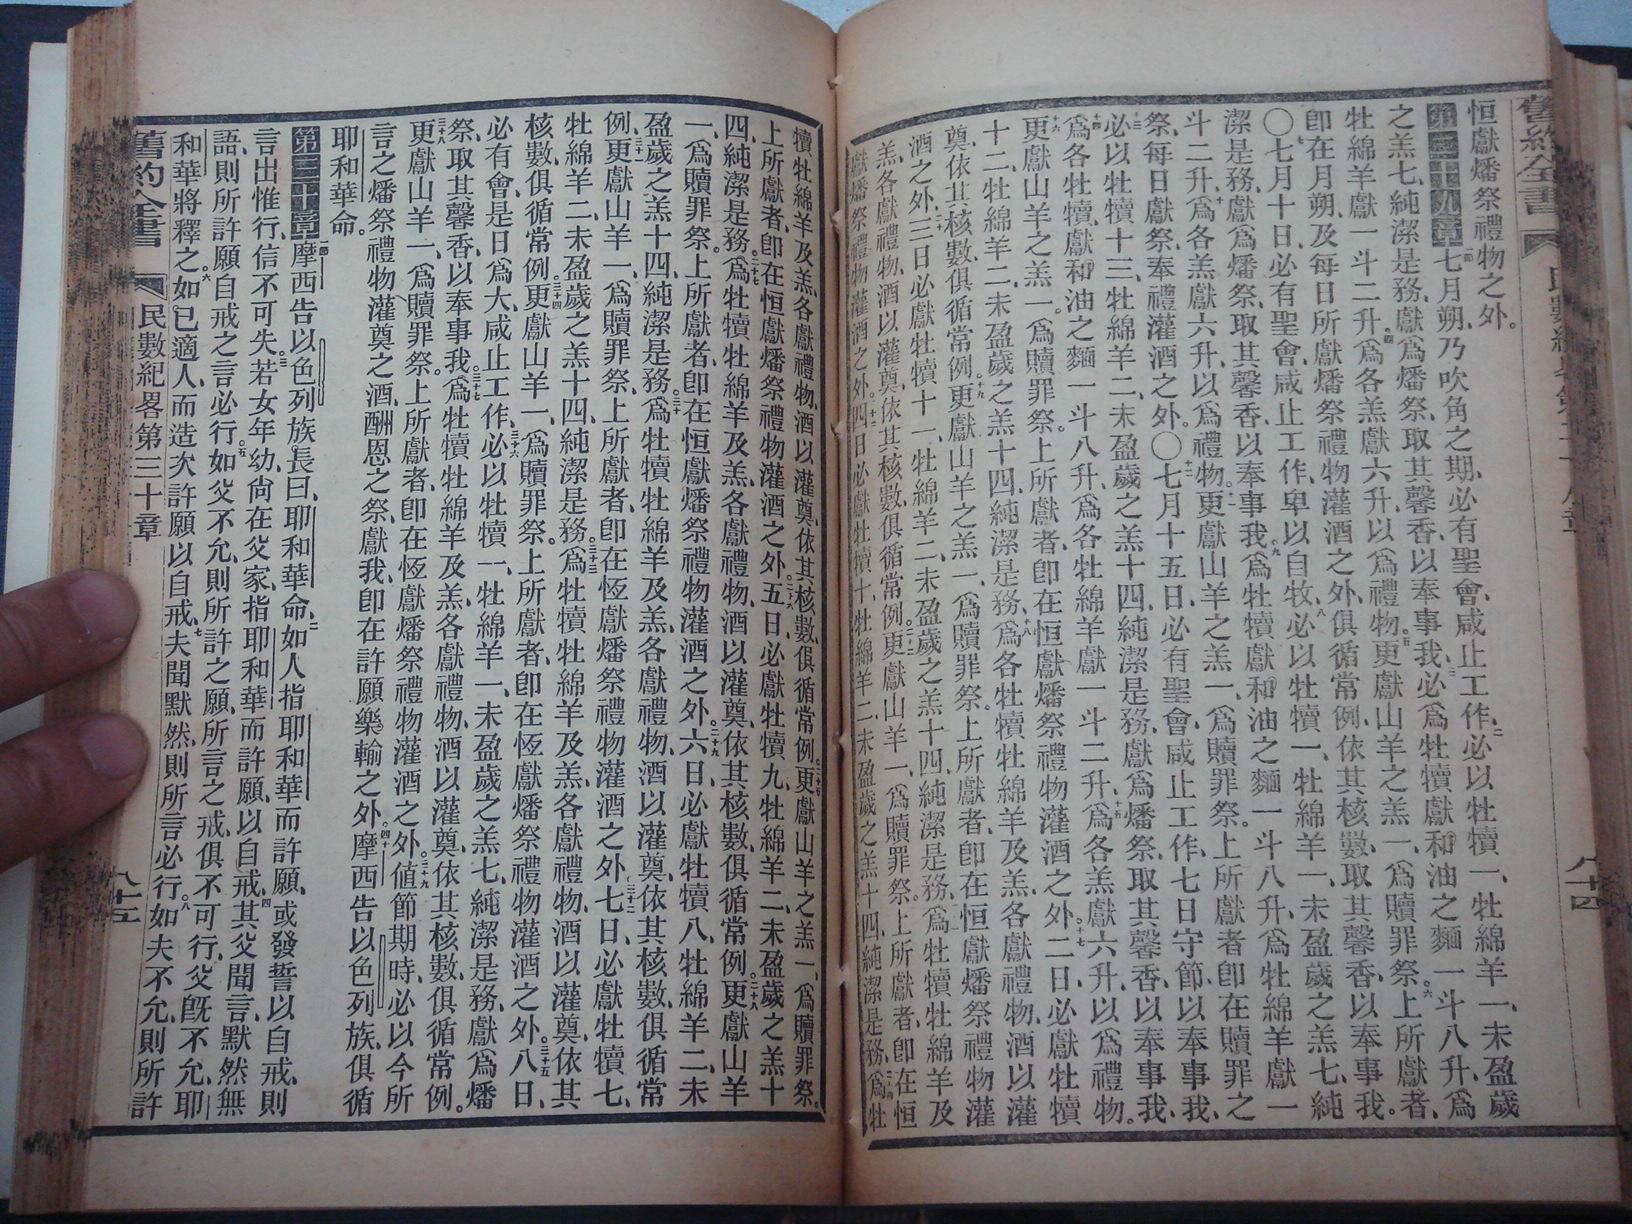 舊約全書
八十四
恒獻燔祭禮物之外。
第二十九章一節七月朔、乃吹角之期、必有聖會、咸止工作、二必以牡犢一、牡綿羊一、未盈歲
之羔七、純潔是務、獻爲燔祭、取其馨香、以奉事我、三必爲牡犢獻和油之麵一斗八升、爲
牡綿羊獻一斗二升、四爲各羔獻六升、以爲禮物、五更獻山羊之羔一、爲贖罪祭。六上所獻者、
卽在月朔、及每日所獻燔祭禮物灌酒之外、俱循常例、依其核數、取其馨香、以奉事我。
〇七七月十日、必有聖會、咸止工作、卑以自牧、八必以牡犢一、牡綿羊一、未盈歲之羔七、純
潔是務、獻爲燔祭、取其馨香、以奉事我。九爲牡犢獻和油之麵一斗八升、爲牡綿羊獻一
斗二升、十爲各羔獻六升、以爲禮物。十一更獻山羊之羔一、爲贖罪祭。上所獻者、卽在贖罪之
祭、每日獻燔祭、奉禮灌酒之外。〇十二七月十五日、必有聖會、咸止工作、七日守節、以奉事我、
十三必以牡犢十三、牡綿羊二、未盈歲之羔十四、純潔是務、獻爲燔祭、取其馨香、以奉事我、
十四爲各牡犢、獻和油之麵一斗八升、爲各牡綿羊獻一斗二升、十五爲各羔獻六升、以爲禮物。
十六更獻山羊之羔一。爲贖罪祭。上所獻者、卽在恒獻燔祭禮物灌酒之外。十七二日必獻牡犢
十二、牡綿羊二、未盈歲之羔十四、純潔是務、十八爲各牡犢牡綿羊及羔、各獻禮物、酒以灌
奠、依其核數、俱循常例。十九更獻山羊之羔一、爲贖罪祭。上所獻者、卽在恒獻燔祭禮物灌
酒之外、二十三日必獻牡犢十一、牡綿羊二、未盈歲之羔十四、純潔是務、二十一爲牡犢牡綿羊及
羔、各獻禮物、酒以灌奠、依其核數、俱循常例。二十二更獻山羊一、爲贖罪祭。上所獻者、卽在恒
獻燔祭禮物灌酒之外。二十三四日必獻牡犢十、牡綿羊二、未盈歲之羔十四、純潔是務、二十四爲牡
犢牡綿羊及羔、各獻禮物、酒以灌奠、依其核數、俱循常例。二十五更獻山羊之羔一、爲贖罪祭。
上所獻者、卽在恒獻燔祭禮物灌酒之外。二十六五日、必獻牡犢九、牡綿羊二、未盈歲之羔十
四、純潔是務。二十七爲牡犢牡綿羊及羔、各獻禮物、酒以灌奠、依其核數、俱循常例。二十八更獻山羊
一、爲贖罪祭。上所獻者、卽在恒獻燔祭禮物灌酒之外。二十九六日、必獻牡犢八、牡綿羊二、未
盈歲之羔十四、純潔是務。三十爲牡犢牡綿羊及羔、各獻禮物、酒以灌奠、依其核數、俱循常
例、三十一更獻山羊一、爲贖罪祭、上所獻者、卽在恆獻燔祭禮物灌酒之外、三十二七日、必獻牡犢七、
牡綿羊二、未盈歲之羔十四、純潔是務。三十三爲牡犢牡綿羊及羔、各獻禮物、酒以灌奠、依其
核數、俱循常例、三十四更獻山羊一、爲贖罪祭。上所獻者、卽在恆獻燔祭禮物灌酒之外。三十五八日、
必有會、是日爲大、咸止工作、三十六必以牡犢一、牡綿羊一、未盈歲之羔七、純潔是務、獻爲燔
祭、取其馨香、以奉事我。三十七爲牡犢牡綿羊及羔、各獻禮物、酒以灌奠、依其核數、俱循常例。
三十八更獻山羊一、爲贖罪祭。上所獻者、卽在恆獻燔祭禮物灌酒之外。三十九値節期時、必以今所
言之燔祭。禮物灌奠之酒、酬恩之祭、獻我、卽在許願樂輸之外。四十摩西告以色列族、俱循
耶和華命。
第三十章一節摩西告以色列族長曰、耶和華命、二如人指耶和華而許願、或發誓以自戒、則
言出惟行、信不可失。三若女年幼、尙在父家、指耶和華而許願、以自戒、四其父聞言、默然無
語、則所許願自戒之言必行。五如父不允、則所許之願、所言之戒、俱不可行、父旣不允、耶
和華將釋之。六如已適人、而造次許願以自戒、七夫聞默然、則所言必行。八如夫不允、則所許
舊約全書
民數紀畧第三十章
八十五